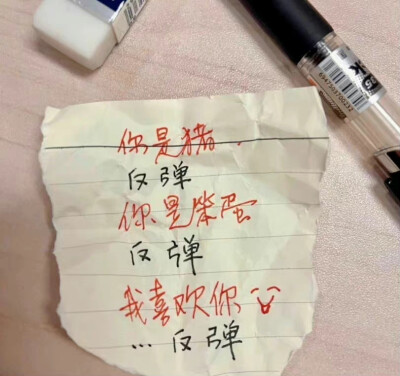 你是猪.
反弹
你是笨蛋
反弹
我喜欢你
... 反弹